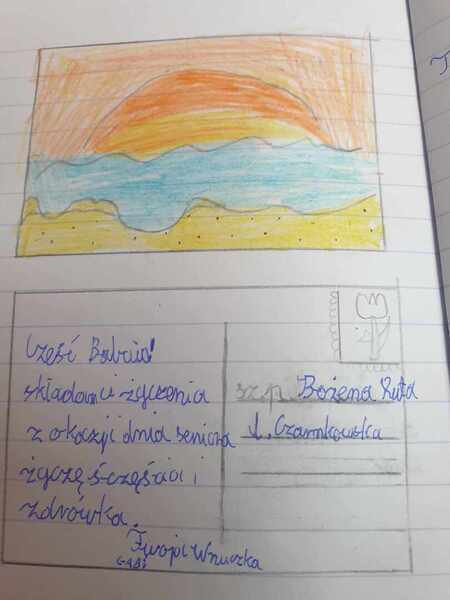 Cześć Babciu!
składam ci życzenia
z okazji dnia seniora
życzę szczęścia i
zdrówka.
Twoja Wnuczka
Gabi
sz.p. Bożena
Czarnkowska
T